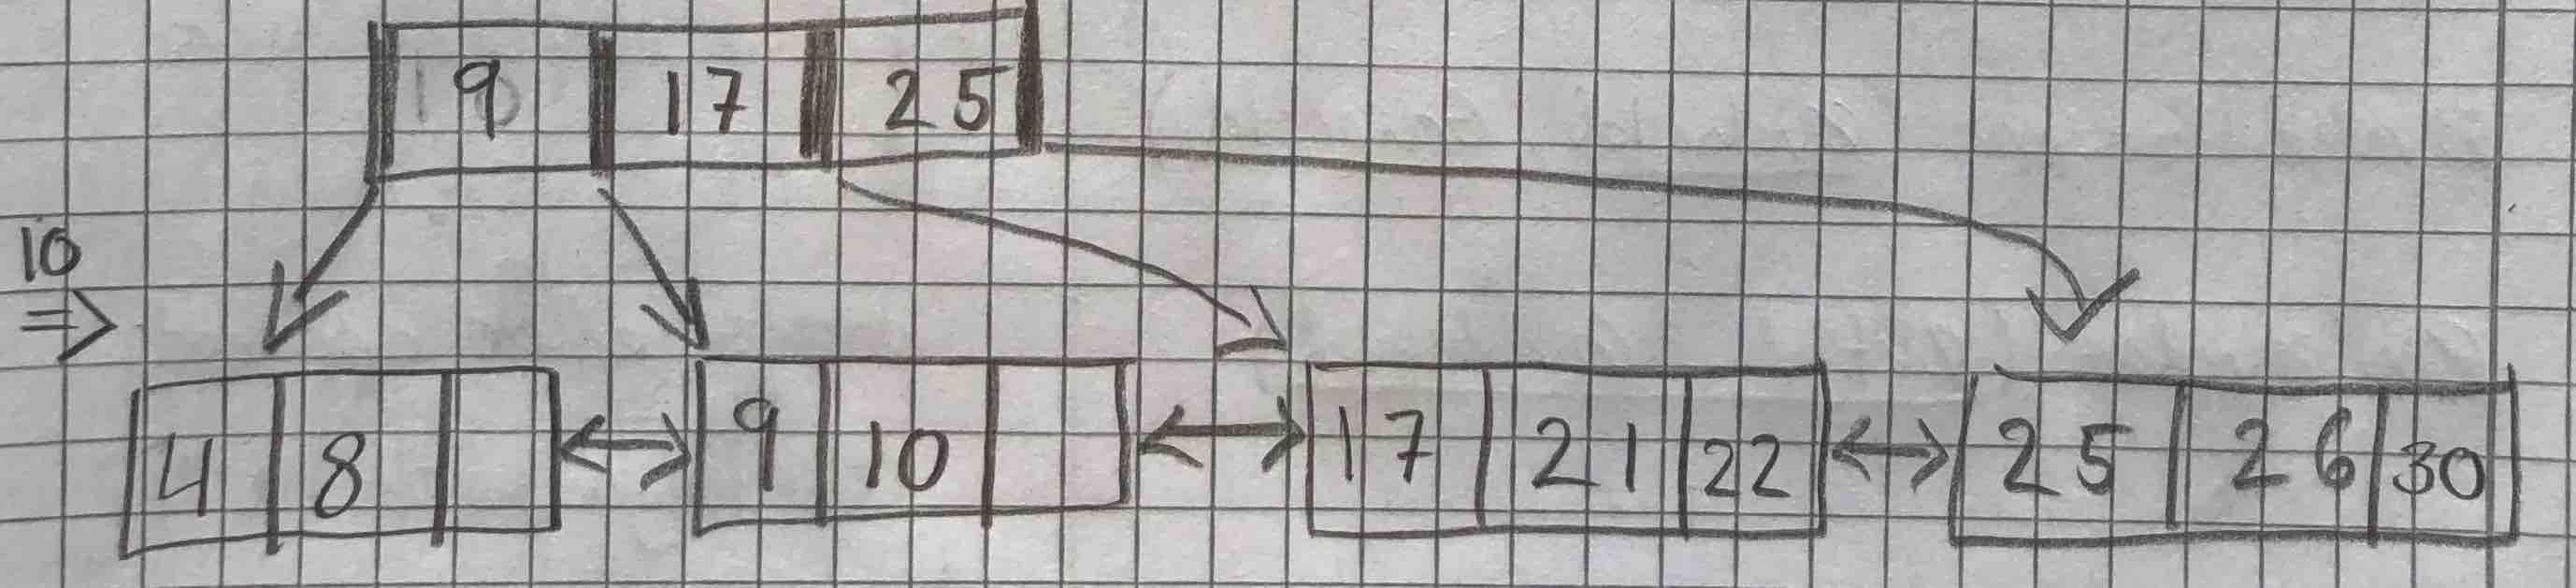 9 17 25
10
=>
4 8 9 10 17 21 22 25 26 30